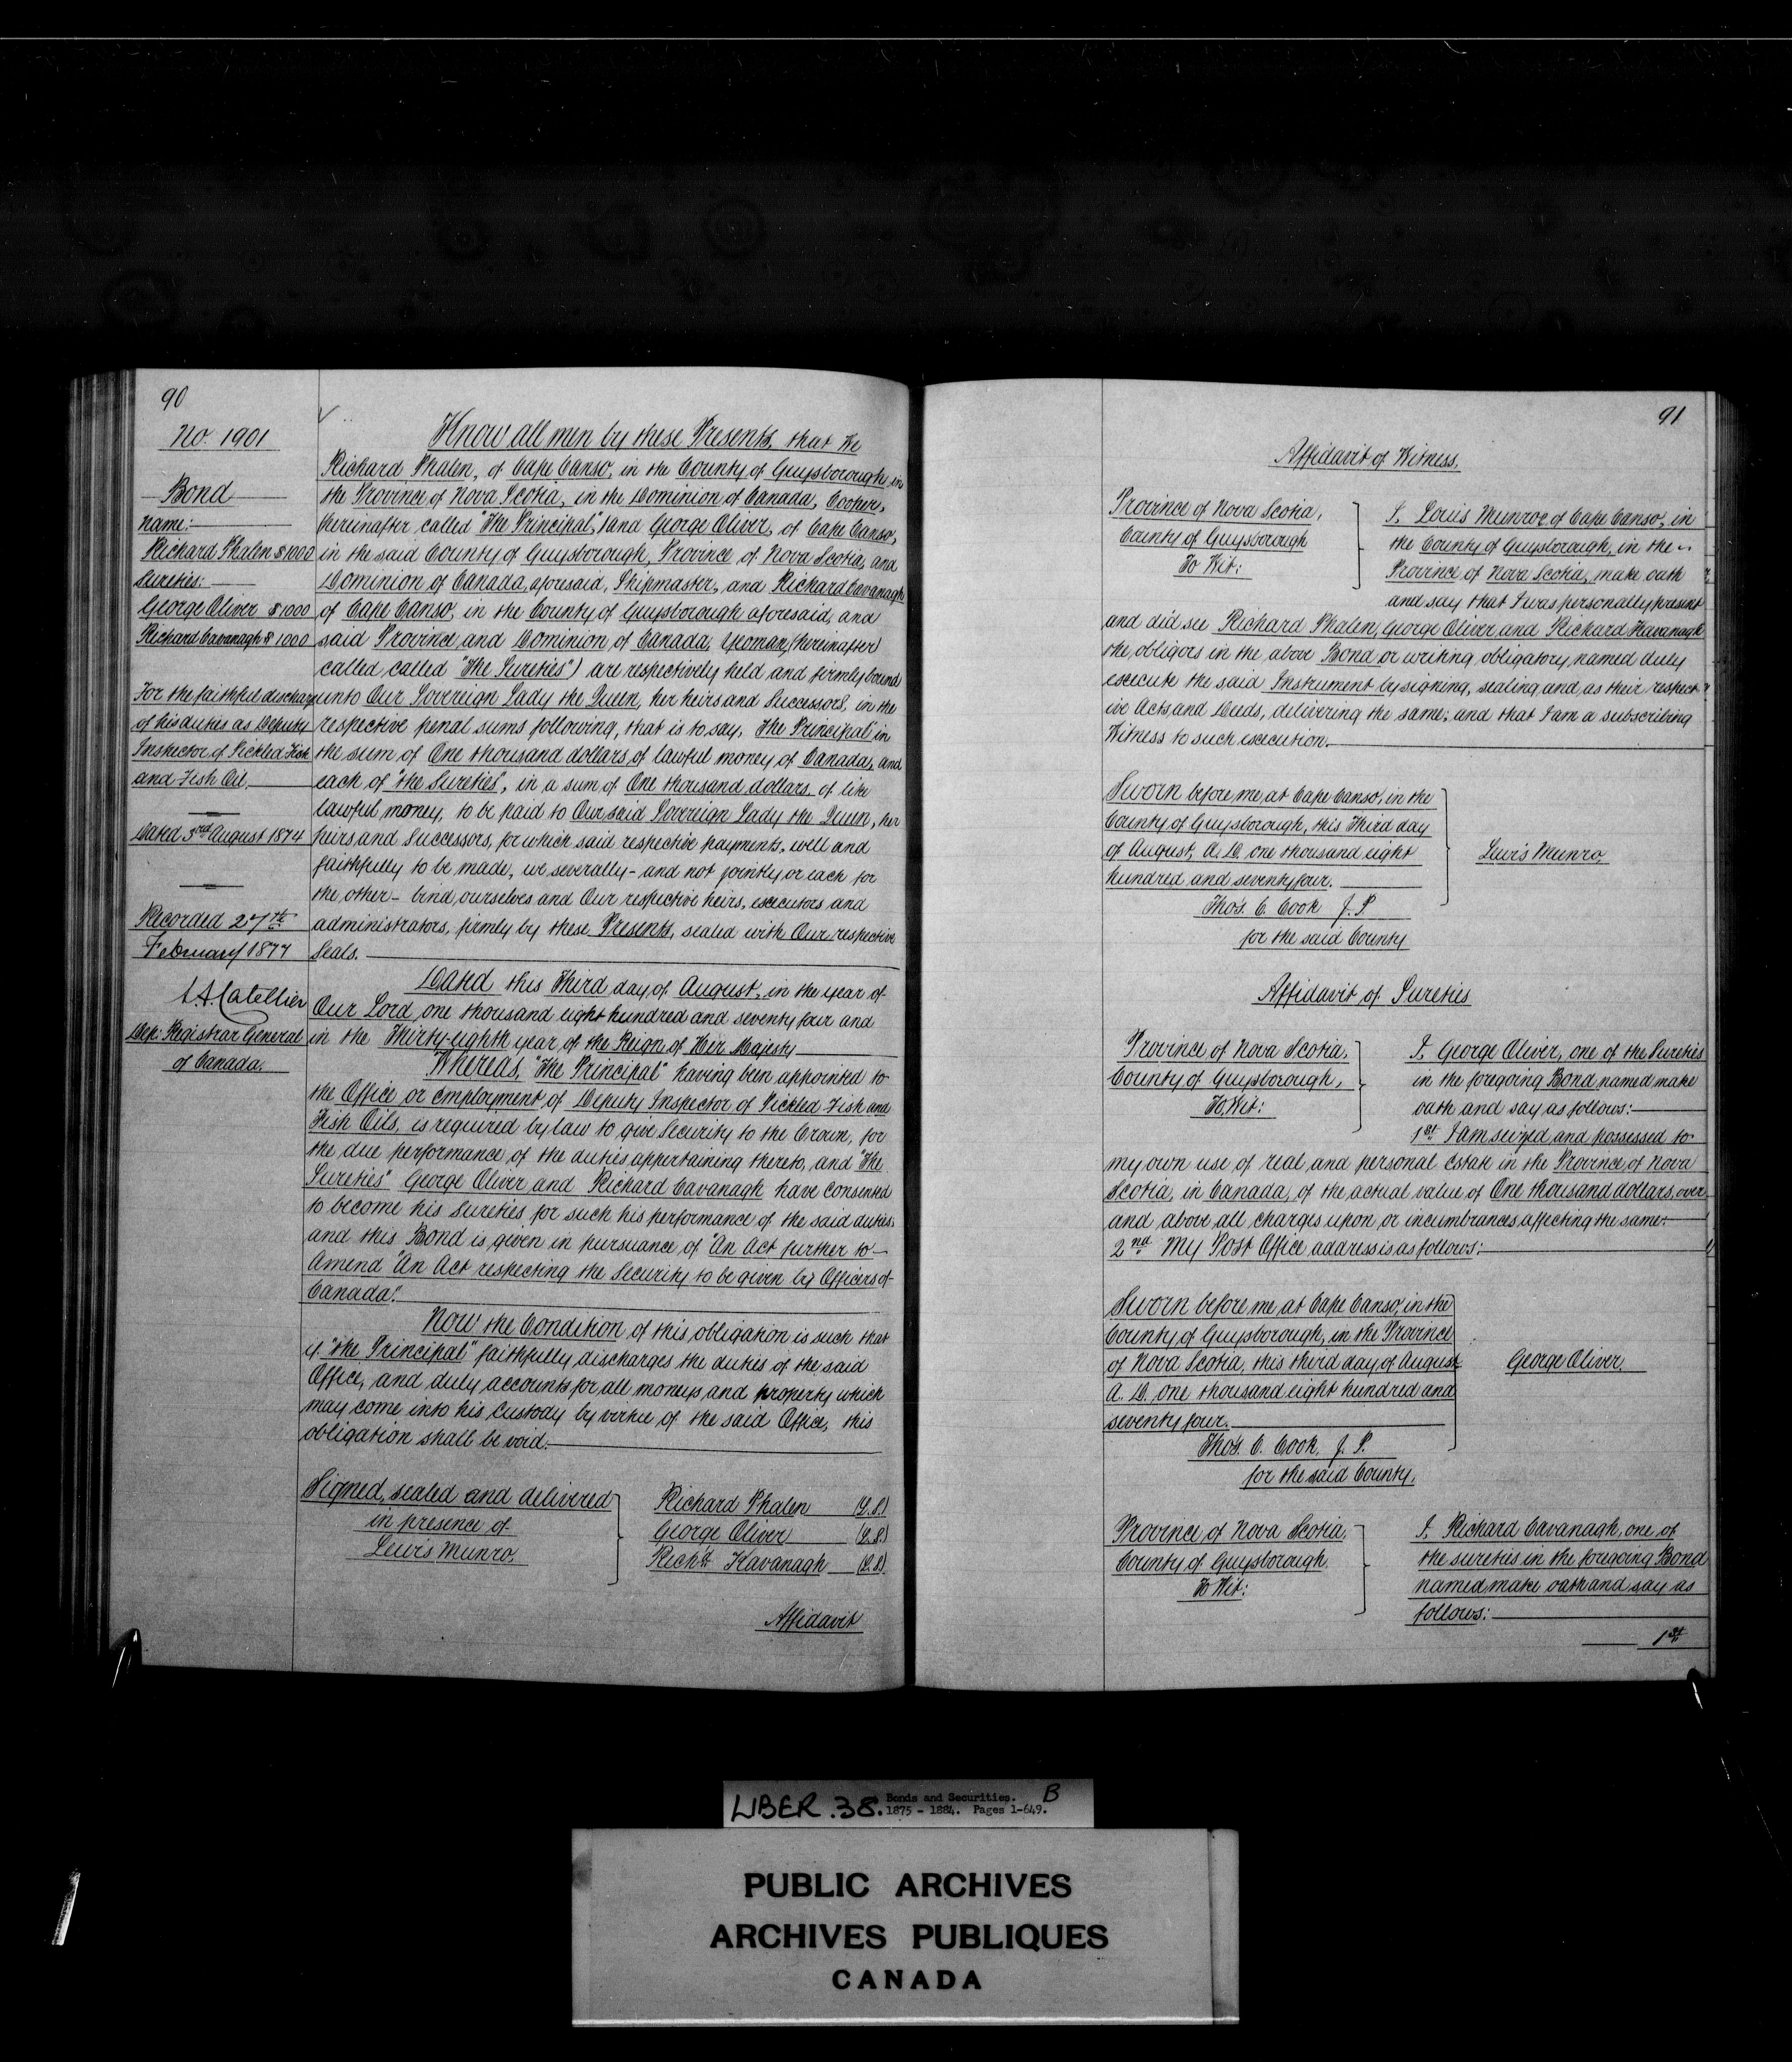 90
No. 1901
Bond
Name:
Richard Phalen $1000
Sureties:
George Oliver $1000
Richard Cavanagh $1000
For the faithful discharge
of his duties as Deputy
Inspector of Pickled Fish
and Fish Oil.
Dated 3rd August 1874
Recorded 27th
February 1877
L.A. Catellier
Dep: Registrar General
of Canada.
Know all men by these Presents, that We
Richard Phalen, of Cape Canso, in the County of Guysborough, in
the Province of Nova Scotia, in the Dominion of Canada, Cooper,
(hereinafter called "The Principal,") and George Oliver, of Cape Canso,
in the said County of Guysborough, Province of Nova Scotia, and
Dominion of Canada, aforesaid, Shipmaster, and Richard Cavanagh
of Cape Canso, in the County of Guysborough aforesaid, and
said Province and Dominion of Canada, Yeoman, (hereinafter)
called called "The Sureties") are respectively held and firmly bound
unto Our Sovereign Lady the Queen, her heirs and Successors, in the
respective penal sums following, that is to say, The Principal in
the sum of One thousand dollars of lawful money of Canada, and
each of "the Sureties", in a sum of One thousand dollars of like
lawful money, to be paid to Our said Sovereign Lady the Queen, her
heirs and Successors, for which said respective payments, well and
faithfully to be made, we severally - and not jointly or each for
the other - bind ourselves and Our respective heirs, executors and
administrators, firmly by these Presents, sealed with Our respective
Seals.
Dated this Third day of August, in the year of
Our Lord one thousand eight hundred and seventy four and
in the Thirty-eighth year of the Reign of Her Majesty
Whereas, "The Principal" having been appointed to
the Office or employment of Deputy Inspector of Pickled Fish and
Fish Oils, is required by law to give Security to the Crown, for
the due performance of the duties appertaining thereto, and "The
Sureties" George Oliver and Richard Cavanagh have consented
to become his Sureties for such his performance of the said duties,
and this Bond is given in pursuance of "An Act further to
Amend "An Act respecting the Security to be given by Officers of
Canada".
Now the Condition of this obligation is such that
if "the Principal" faithfully discharges the duties of the said
Office, and duly accounts for all moneys and property which
may come into his Custody by virtue of the said Office, this
obligation shall be void.
Signed, sealed and delivered
in presence of
Lewis Munro.
Richard Phalen (L.S.)
George Oliver (L.S.)
Richd. Kavanagh (L.S.)
Affidavit
91
Affidavit of Witness.
Province of Nova Scotia,
County of Guysborough
To Wit:
I, Louis Munroe of Cape Canso, in
the County of Guysborough, in the
Province of Nova Scotia, make oath
and say that I was personally present
and did see Richard Phalen, George Oliver and Richard Kavanagh
the obligors in the above Bond or writing obligatory, named duly
execute the said Instrument by signing, sealing and as their respect
ive Acts and Deeds, delivering the same; and that I am a subscribing
Witness to such execution.
Sworn before me at Cape Canso, in the
County of Guysborough, this Third day
of August, A. D. one thousand eight
hundred and seventy four.
Thos. C. Cook J. P.
for the said County
Lewis Munro.
Affidavit of Sureties
Province of Nova Scotia,
County of Guysborough,
To Wit:
I, George Oliver, one of the Sureties
in the foregoing Bond named make
oath and say as follows:
1st I am seized and possessed to
my own use of real and personal Estate in the Province of Nova
Scotia, in Canada, of the actual value of One thousand dollars, over
and above all charges upon or incumbrances affecting the same:
2nd My Post Office address is as follows:
Sworn before me at Cape Canso, in the
County of Guysborough, in the Province
of Nova Scotia, this third day of August
A. D. one thousand eight hundred and
seventy four.
Thos. C. Cook, J. P.
for the said County.
George Oliver.
Province of Nova Scotia,
County of Guysborough.
To Wit:
I, Richard Cavanagh, one of
the sureties in the foregoing Bond
named make oath and say as
follows:
1st
LIBER .38. Bonds and Securities. B
1875 - 1884. Pages 1-649.
PUBLIC ARCHIVES
ARCHIVES PUBLIQUES
CANADA